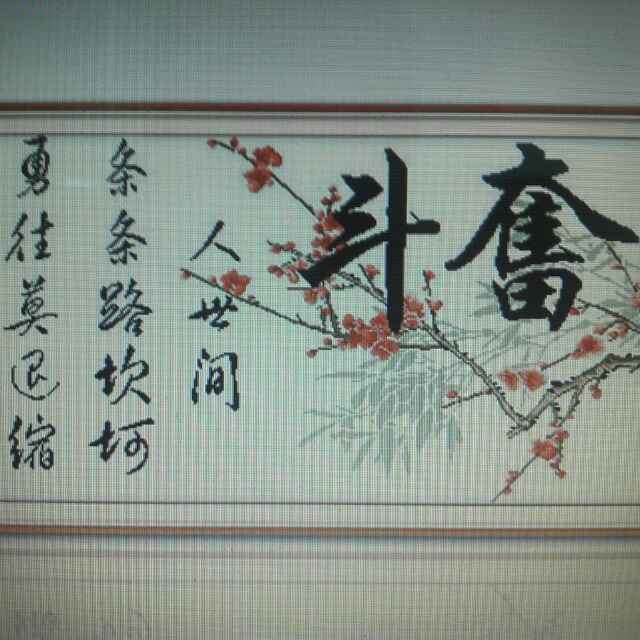 奮斗
人世间
条条路坎坷
勇往莫退缩